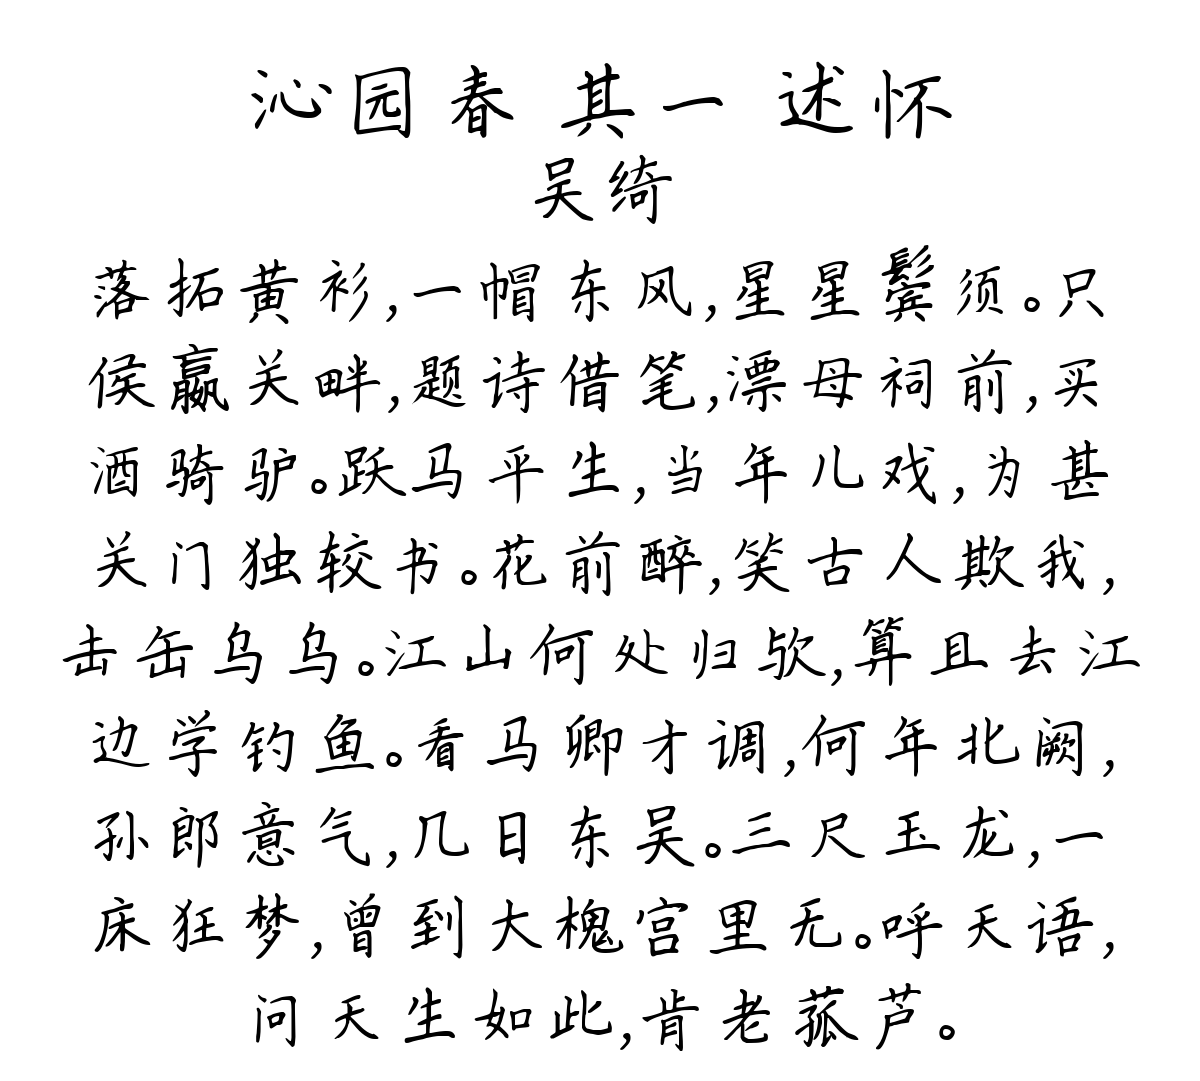 沁园春 其一 述怀
吴绮
落拓黄衫,一帽东风,星星鬓须。只
侯嬴关畔,题诗借笔,漂母祠前,买
酒骑驴。跃马平生,当年儿戏,为甚
关门独较书。花前醉,笑古人欺我,
击缶乌乌。江山何处归欤,算且去江
边学钓鱼。看马卿才调,何年北阙,
孙郎意气,几日东吴。三尺玉龙,一
床狂梦,曾到大槐宫里无。呼天语,
问天生如此,肯老菰芦。